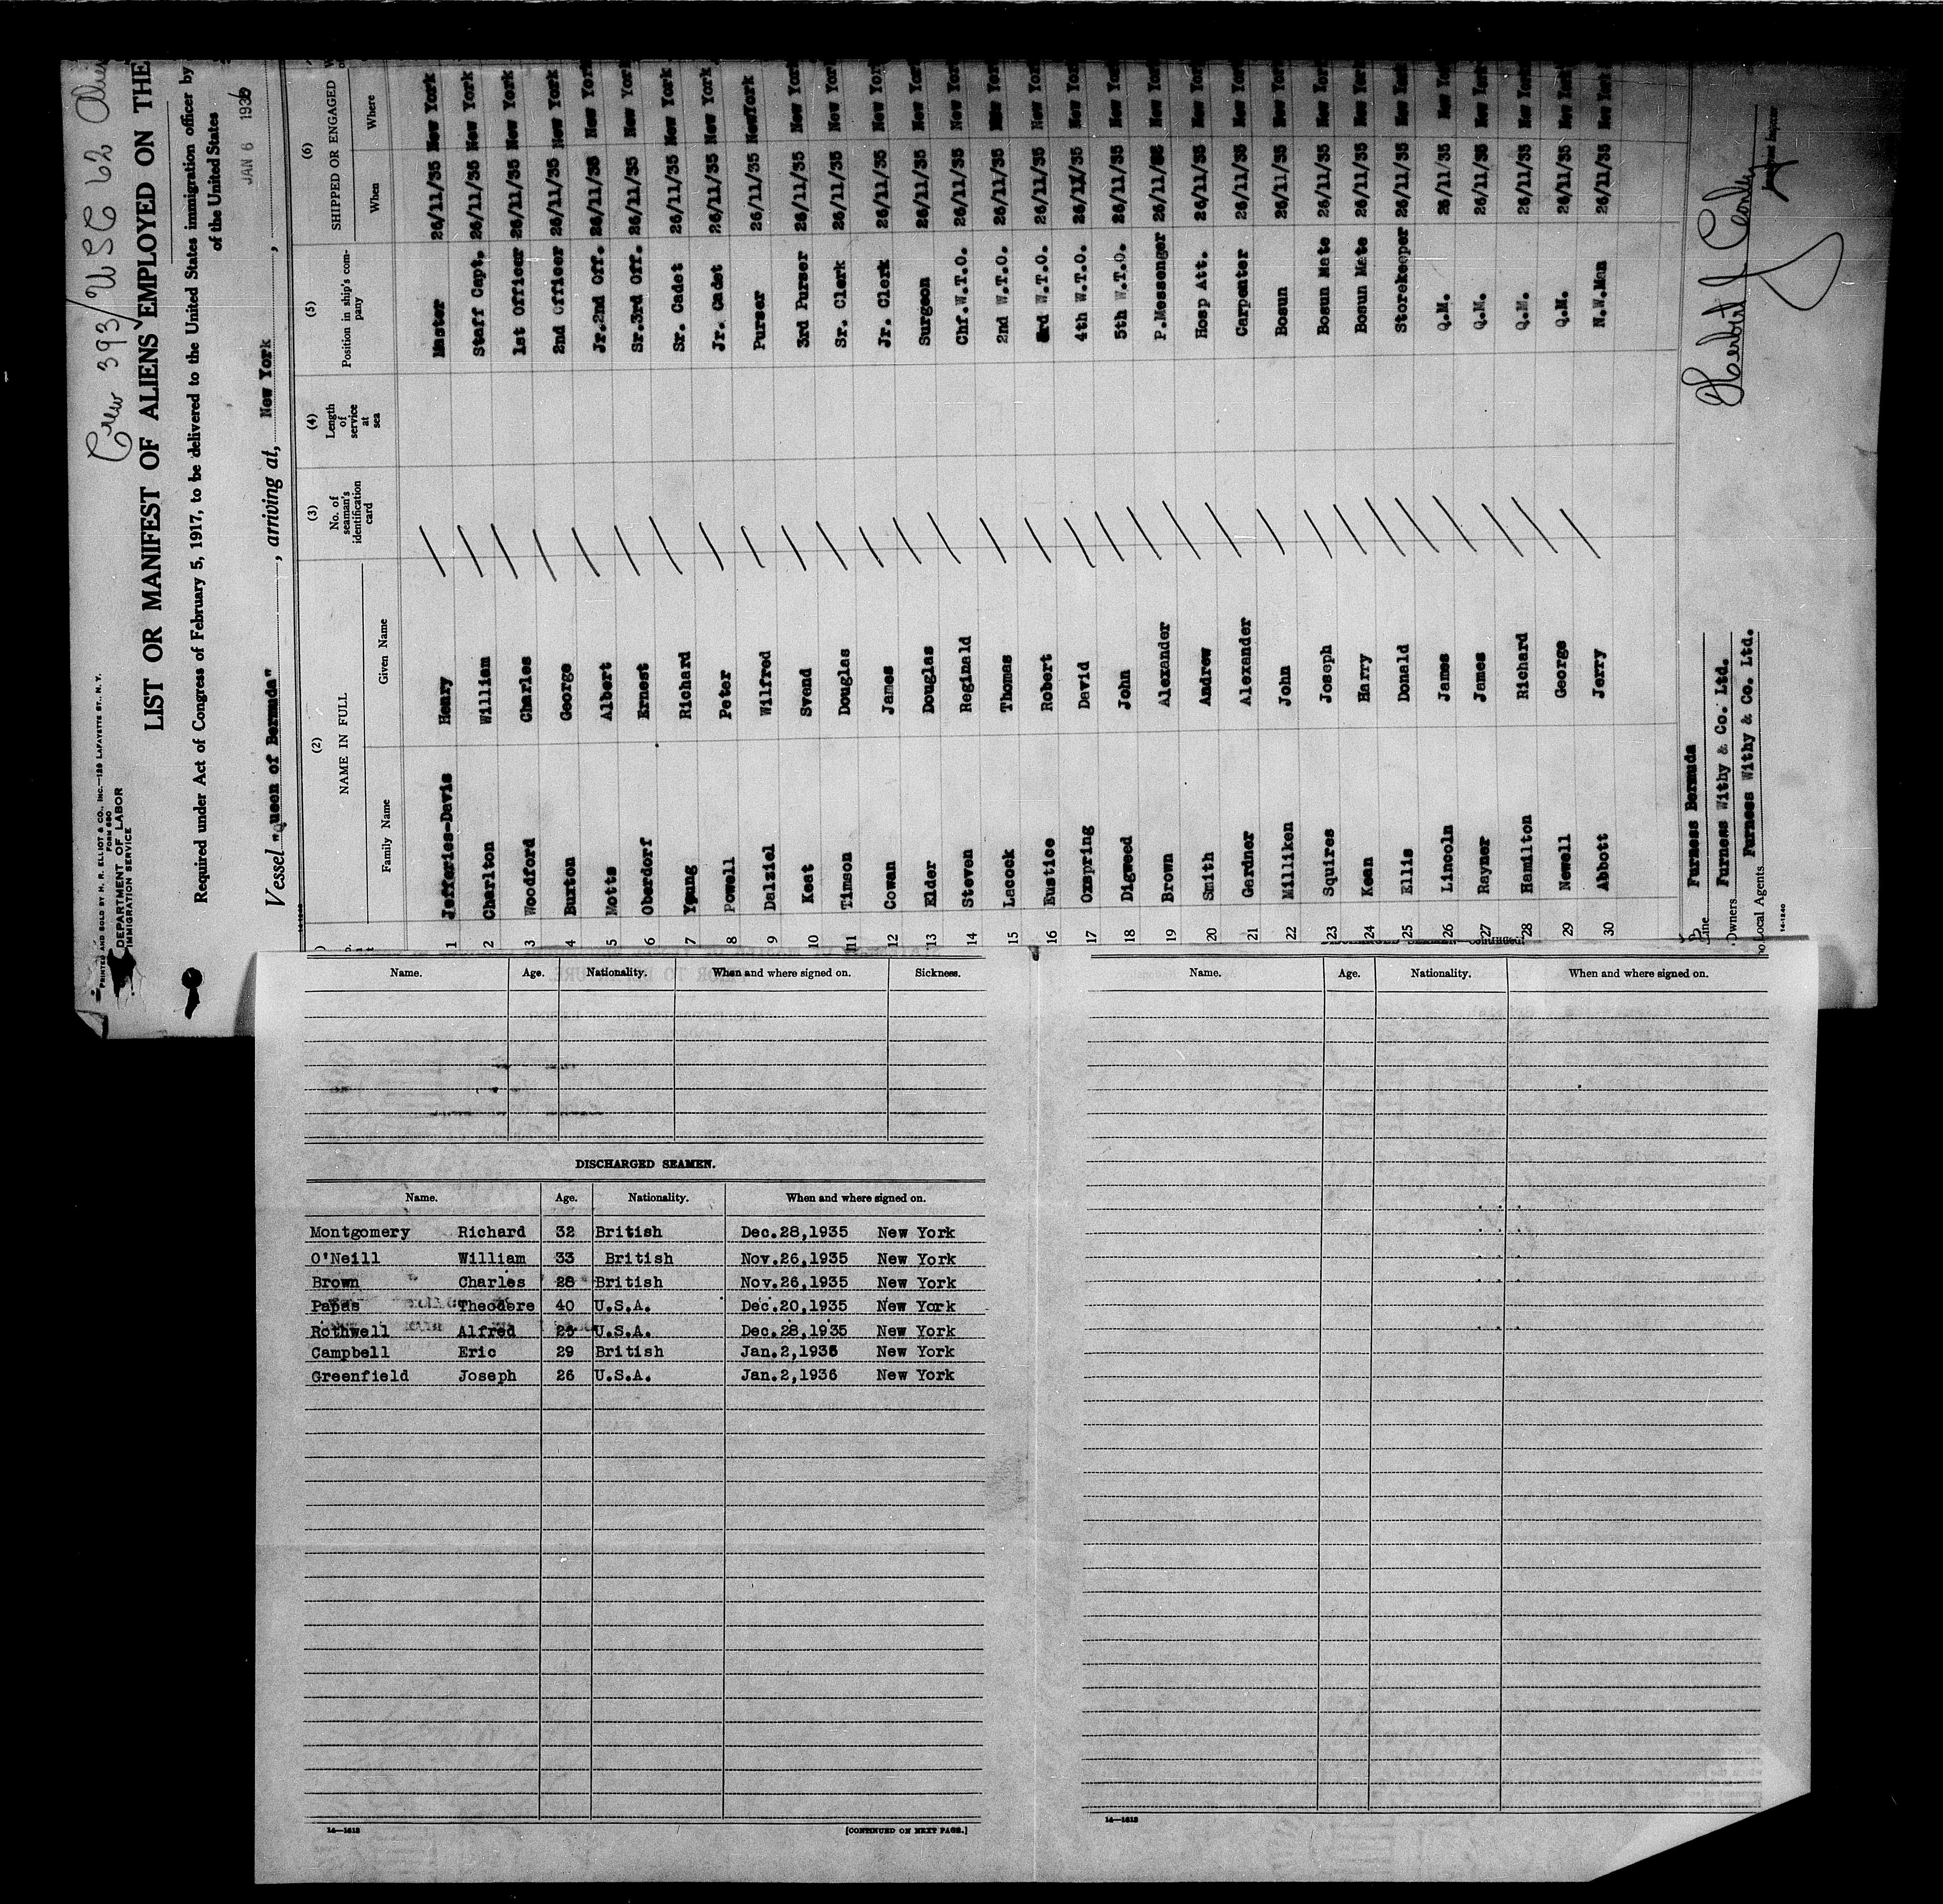 Crew 393/ USC 62
PRINTED AND SOLD BY H. R. ELLIOT & CO., INC.—129 LAFAYETTE ST., N. Y.
FORM 680
DEPARTMENT OF LABOR
IMMIGRATION SERVICE
LIST OR MANIFEST OF ALIENS EMPLOYED ON THE
Required under Act of Congress of February 5, 1917, to be delivered to the United States immigration officer by
of the United States
Vessel "Queen of Bermuda", arriving at, New York, JAN 6 1936
(2) (3) (4) (5) (6)
NAME IN FULL No. of seaman's identification card Length of service at sea Position in ship's company SHIPPED OR ENGAGED
Family Name Given Name When Where
1 Jefferies-Davis Henry Master 26/11/35 New York
2 Charlton William Staff Capt. 26/11/35 New York
3 Woodford Charles 1st Officer 26/11/35 New York
4 Burton George 2nd Officer 26/11/35 New York
5 Motts Albert Jr.2nd Off. 26/11/35 New York
6 Oberdorf Ernest Sr.3rd Off. 26/11/35 New York
7 Young Richard Sr. Cadet 26/11/35 New York
8 Powell Peter Jr. Cadet 26/11/35 New York
9 Dalziel Wilfred Purser 26/11/35 NewYork
10 Keat Svend 3rd Purser 26/11/35 New York
11 Timson Douglas Sr. Clerk 26/11/35 New York
12 Cowan James Jr. Clerk 26/11/35 New York
13 Elder Douglas Surgeon 26/11/35 New York
14 Steven Reginald Chf.W.T.O. 26/11/35 New York
15 Lacock Thomas 2nd W.T.O. 26/11/35 New York
16 Eustice Robert 3rd W.T.O. 26/11/35 New York
17 Oxspring David 4th W.T.O. 26/11/35 New York
18 Digweed John 5th W.T.O. 26/11/35 New York
19 Brown Alexander P.Messenger 26/11/35 New York
20 Smith Andrew Hosp Att. 26/11/35 New York
21 Gardner Alexander Carpenter 26/11/35 New York
22 Milliken John Bosun 26/11/35 New York
23 Squires Joseph Bosun Mate 26/11/35 New York
24 Kean Harry Bosun Mate 26/11/35 New York
25 Ellis Donald Storekeeper 26/11/35 New York
26 Lincoln James Q.M. 26/11/35 New York
27 Rayner James Q.M. 26/11/35 New York
28 Hamilton Richard Q.M. 26/11/35 New York
29 Newell George Q.M. 26/11/35 New York
30 Abbott Jerry N.W.Man 26/11/35 New York
Line Furness Bermuda
Owners Furness Withy & Co. Ltd.
Local Agents Furness Withy & Co. Ltd.
14-1240
Name. Age. Nationality. When and where signed on. Sickness.
DISCHARGED SEAMEN.
Name. Age. Nationality. When and where signed on.
Montgomery Richard 32 British Dec.28,1935 New York
O'Neill William 33 British Nov.26,1935 New York
Brown Charles 28 British Nov.26,1935 New York
Papas Theodore 40 U.S.A. Dec.20,1935 New York
Rothwell Alfred 25 U.S.A. Dec.28,1935 New York
Campbell Eric 29 British Jan.2,1936 New York
Greenfield Joseph 26 U.S.A. Jan.2,1936 New York
14—1613 [CONTINUED ON NEXT PAGE.]
Name. Age. Nationality. When and where signed on.
14—1613